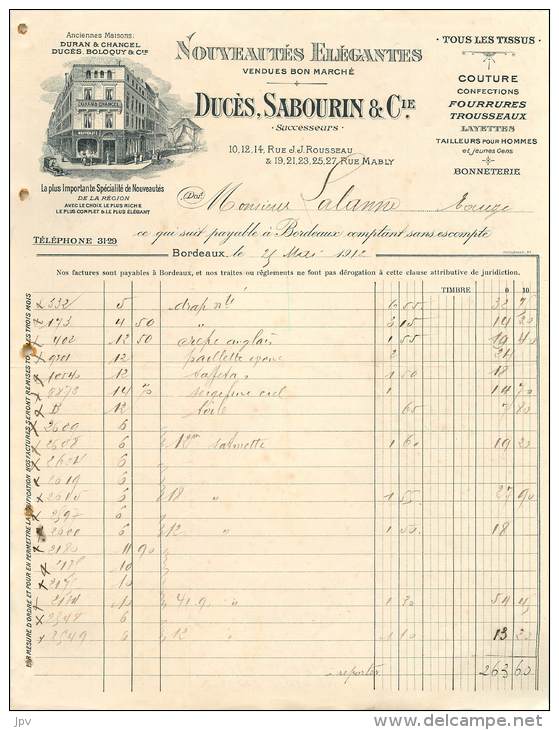 Anciennes Maisons:
DURAN & CHANCEL
DUCÈS, BOLOQUY & Cie
DURAN & CHANCEL
NOUVEAUTÉS
NOUVEAUTÉS ELÉGANTES
VENDUES BON MARCHÉ
DUCÈS, SABOURIN & CIE.
Successeurs
10, 12, 14, RUE J.J. ROUSSEAU
& 19, 21, 23, 25, 27 RUE MABLY
• TOUS LES TISSUS •
COUTURE
CONFECTIONS
FOURRURES
TROUSSEAUX
LAYETTES
TAILLEURS POUR HOMMES
et jeunes Gens
BONNETERIE
La plus Importante Spécialité de Nouveautés
DE LA RÉGION
AVEC LE CHOIX LE PLUS RICHE
LE PLUS COMPLET & LE PLUS ÉLÉGANT
TÉLÉPHONE 31-29
Doit Monsieur Lalanne Eauze
ce qui suit payable à Bordeaux comptant sans escompte
Bordeaux, le 25 Mai 1912
Nos factures sont payables à Bordeaux, et nos traites ou règlements ne font pas dérogation à cette clause attributive de juridiction.
TIMBRE 0 10
332 5 drap 6 55 32 75
173 4 50 " 3 15 14 20
402 12 50 crêpe anglais 1 55 19 40
12 paillette 2 24
1054 12 taffetas 1 50 18
8873 14 70 1 14 70
12 toile 65 7 80
2609 6
6 12 palmette 1 60 19 20
6
6
6 18 " 1 55 27 90
6
6 12 " 1 50 18
2180 11 90
10
10
10 41.9 " 1 30 54 45
2548 6
2549 6 12 " 1 10 13 20
reporter 263 60
PAR MESURE D'ORDRE ET POUR EN PERMETTRE LA VÉRIFICATION NOS FACTURES SERONT REMISES TOUS LES TROIS MOIS
JPV
www.delcampe.net